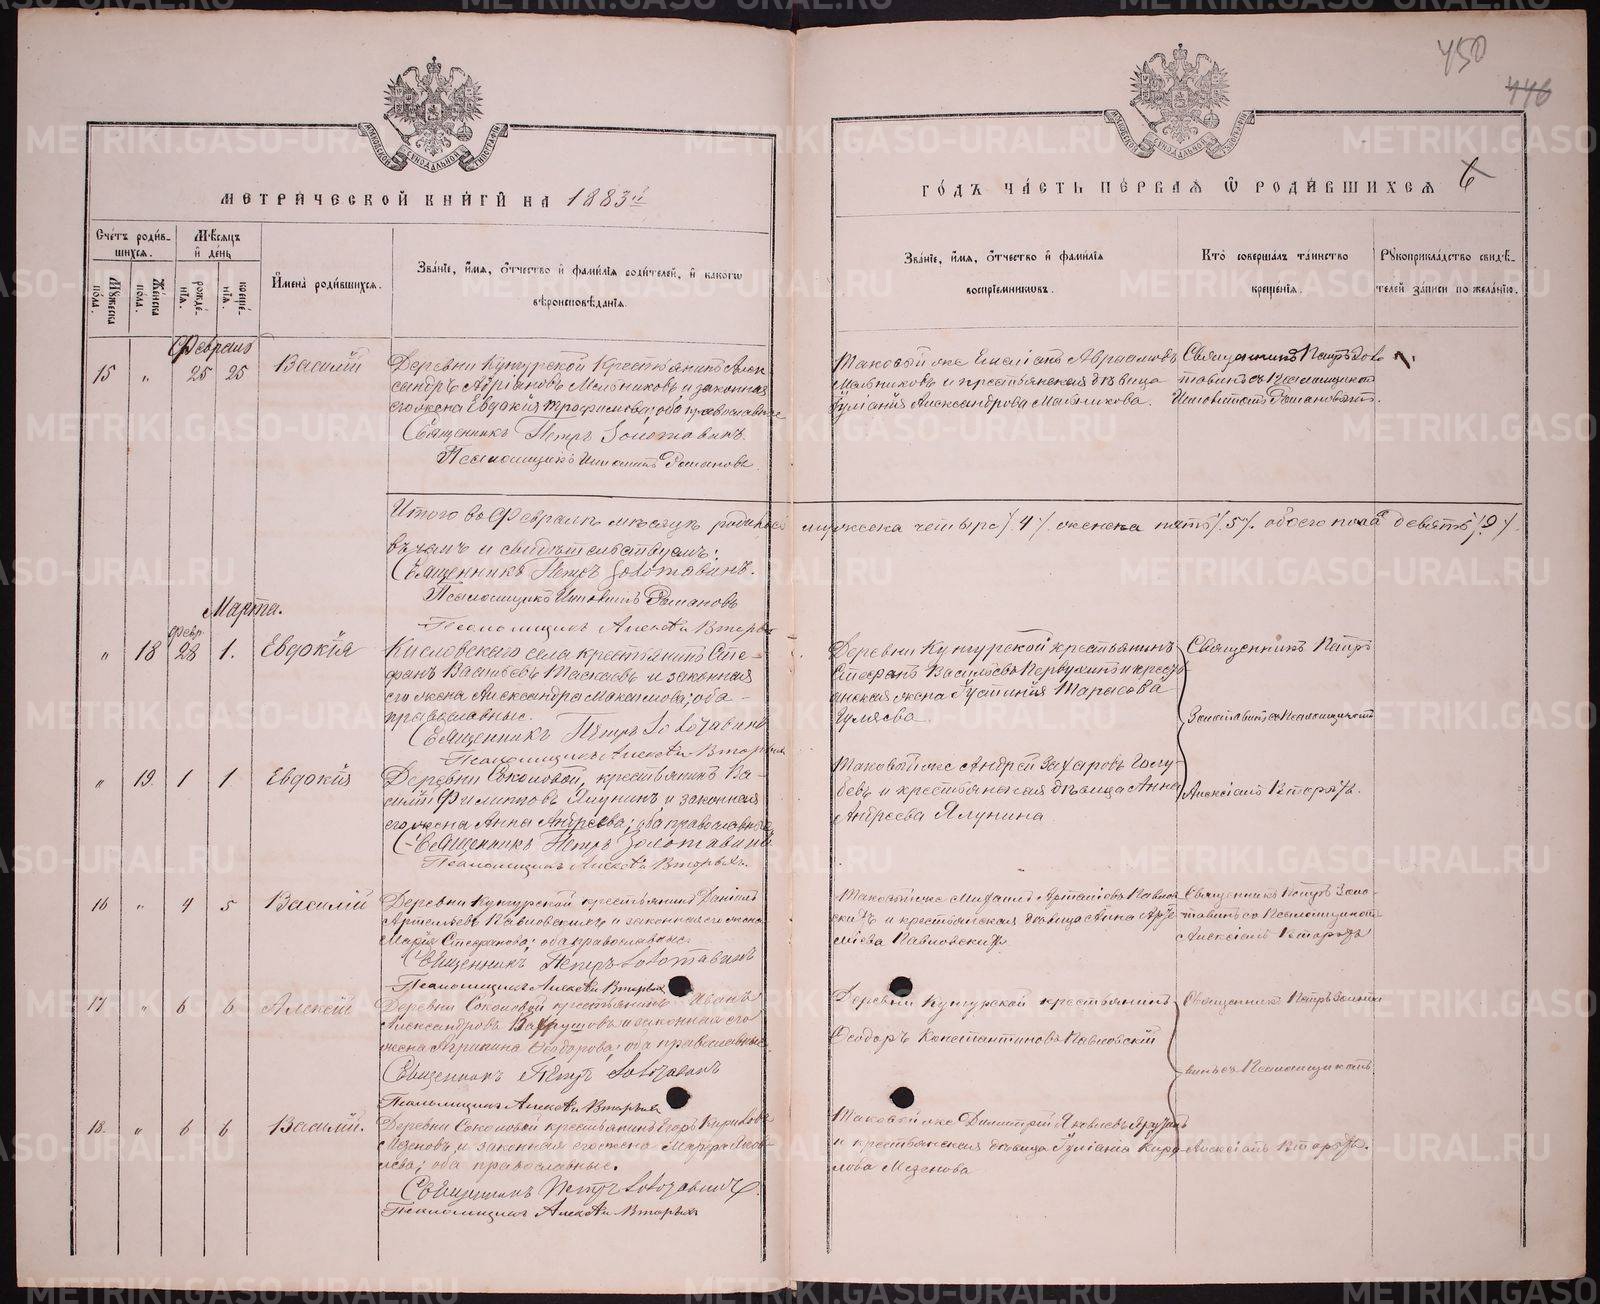 450
446
МОСКОВСКОЙ СѴНОДАЛЬНОЙ ТИПОГРАФІИ
МОСКОВСКОЙ СѴНОДАЛЬНОЙ ТИПОГРАФІИ
МЕТРИЧЕСКОЙ КНИГИ НА 1883й
ГОДЪ ЧАСТЬ ПЕРВАЯ Ѡ РОДИВШИХСЯ 6
Счетъ родив-
шихся.
Мѣсяцъ
и день
Мужеска пола.
Женска пола.
рожде-
нія.
креще-
нія.
Имена родившихся.
Званіе, имя, отчество и фамилія родителей, и какого
вѣроисповѣданія.
Званіе, имя, отчество и фамилія
воспріемниковъ.
Кто совершалъ таинство
крещенія.
Рукоприкладство свидѣ-
телей записи по желанію.
Февраля
15 " 25 25 Василій
Деревни Кунгурской Крестьянинъ Алек
сандръ Адріановъ Мельниковъ и законная
его жена Евдокія Трофимова; оба православные
Священникъ Петръ Золотавинъ.
Псаломщикъ Ипполитъ Романовъ.
Таковой же Авраамовъ
Мельниковъ и крестьянская дѣвица
Іуліанія Александрова Мельникова.
Священникъ Петръ Золо
тавинъ съ Псаломщикомъ
Ипполитомъ Романовымъ.
Итого въ Февралѣ мѣсяцѣ родилось мужеска четыре /4/. женска пять /5/. обоего пола девять /9/.
въ чемъ и свидѣтельствуемъ:
Священникъ Петръ Золотавинъ.
Псаломщикъ Ипполитъ Романовъ
Псаломщикъ Алексѣй Вторыхъ
Марта.
февр.
" 18 28 1. Евдокія
Кисловскаго села крестьянинъ Сте-
фанъ Васильевъ Таскаевъ и законная
его жена Александра Максимова; оба
православные.
Священникъ Петръ Золотавинъ
Псаломщикъ Алексѣй Вторыхъ
Деревни Кунгурской крестьянинъ
Стефанъ Васильевъ Первухинъ и кресть
янская жена Іустинія Тарасова
Гуляева.
Священникъ Петръ
Золотавинъ съ Псаломщикомъ
" 19. 1 1 Евдокія
Деревни Соколовой, крестьянинъ Ва-
силій Филипповъ Ялунинъ и законная
его жена Анна Андреева; оба православные
Священникъ Петръ Золотавинъ
Псаломщикъ Алексѣй Вторыхъ.
Таковый же Андрей Захаровъ Голу-
бевъ и крестьянская дѣвица Анна
Андреева Ялунина
Алексіемъ Вторыхъ.
16 " 4 5 Василій
Деревни Кунгурской крестьянинъ Даніилъ
Артемьевъ Павловскихъ и законная его жена
Марія Стефанова; оба православные.
Священникъ Петръ Золотавинъ
Псаломщикъ Алексѣй Вторыхъ
Таковой же Михаилъ Артемьевъ Павлов
скихъ и крестьянская дѣвица Анна
Павловскихъ
Священникъ Петръ Золо-
тавинъ со Псаломщикомъ
Алексіемъ Вторыхъ
17 " 6 6 Алексій
Деревни Соколовой крестьянинъ Иванъ
Александровъ Вахрушовъ и законная его
жена Агрипина Ѳеодорова; оба православные.
Священникъ Петръ Золотавинъ
Псаломщикъ Алексѣй Вторыхъ
Деревни Кунгурской крестьянинъ
Ѳеодоръ Константиновъ Павловскій
Священникъ Петръ Золота
винъ съ Псаломщикомъ
18. " 6 6 Василій.
Деревни Соколовой крестьянинъ Егоръ Кириловъ
Мезеновъ и законная его жена
оба православные.
Священникъ Петръ Золотавинъ.
Псаломщикъ Алексѣй Вторыхъ
Таковой же Димитрій
и крестьянская дѣвица Іуліана Кири
лова Мезенова
Алексіемъ Вторыхъ.
METRIKI.GASO-URAL.RU